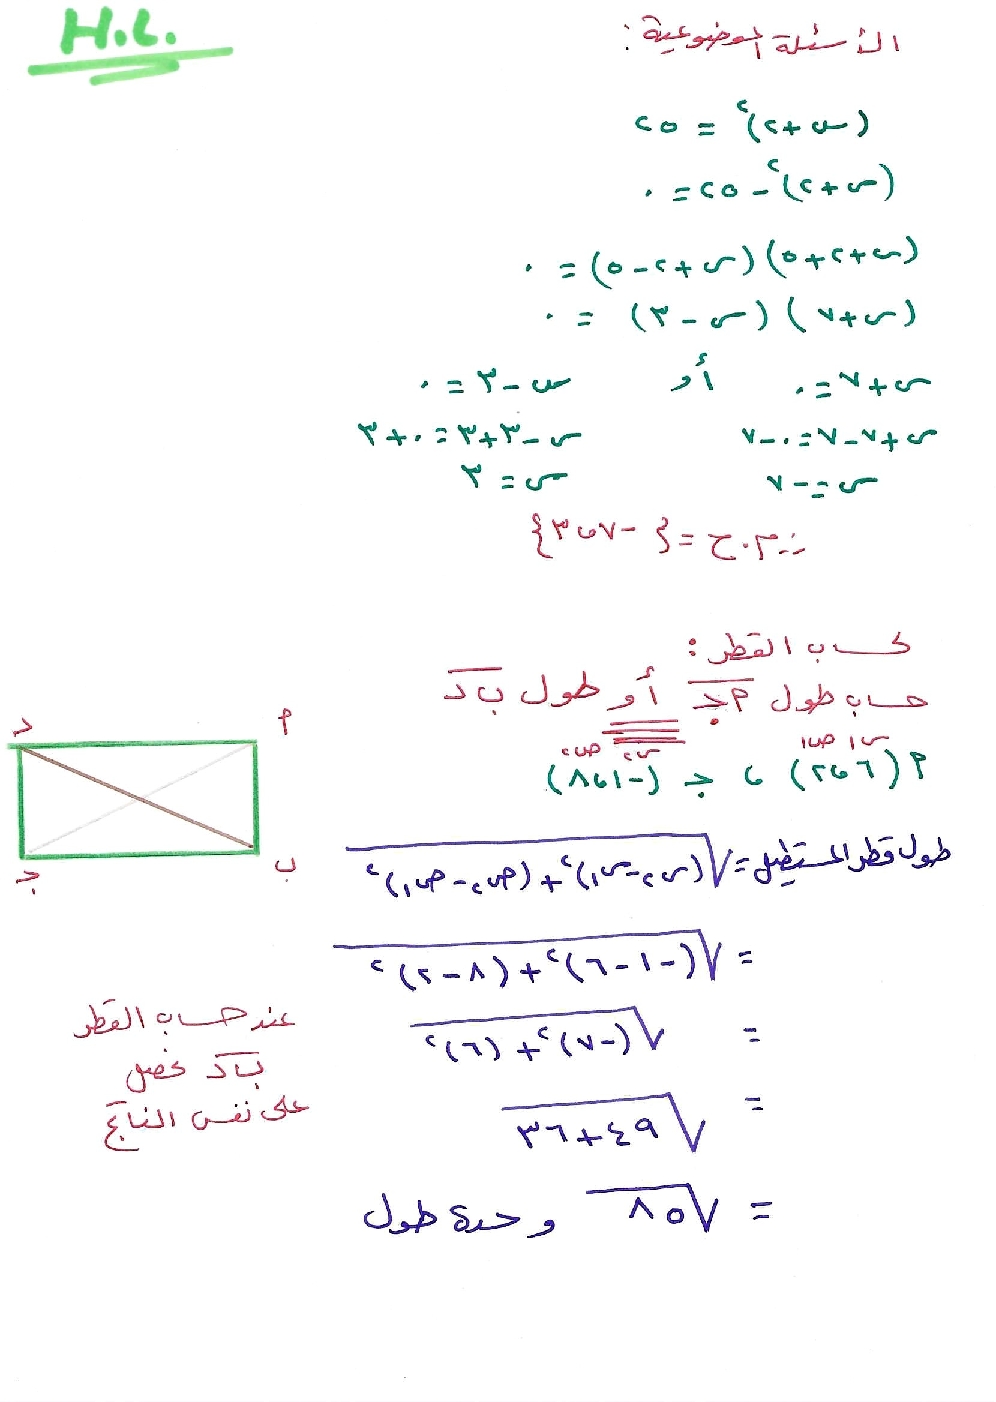 H.L.
الأسئلة الموضوعية :
(س+٢)٢ = ٢٥
(س+٢)٢ - ٢٥ = ٠
(س+٢+٥) (س+٢-٥) = ٠
(س+٧) (س-٣) = ٠
س+٧=٠ أو س-٣=٠
س+٧-٧=٠-٧ س-٣+٣=٠+٣
س=-٧ س=٣
∴ م.ح = {-٧، ٣}
لحساب القطر :
حساب طول م جـ أو طول ب د
س١ ص١ س٢ ص٢
م (٦، ٢) ، جـ (-١، ٨)
د م
جـ ب
طول قطر المستطيل = √(س٢-س١)٢+(ص٢-ص١)٢
= √(-١-٦)٢+(٨-٢)٢
= √(-٧)٢+(٦)٢
= √٤٩+٣٦
= √٨٥ وحدة طول
عند حساب القطر
ب د نحصل
على نفس الناتج